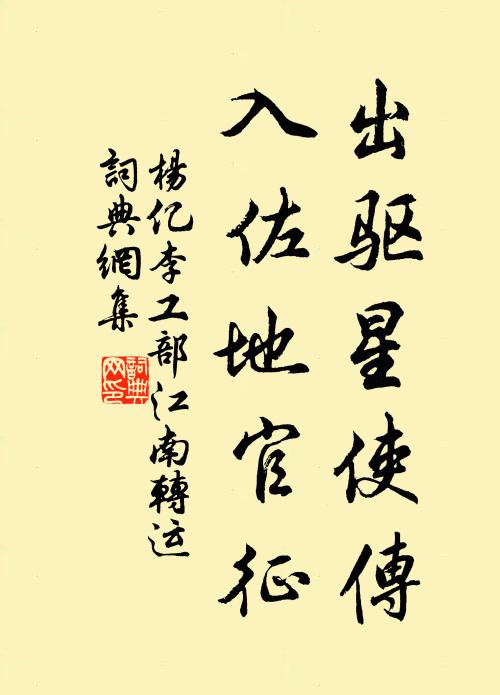 出驱星使傳
入佐地官征
楊亿李工部江南轉运
詞典網集
詞典网印